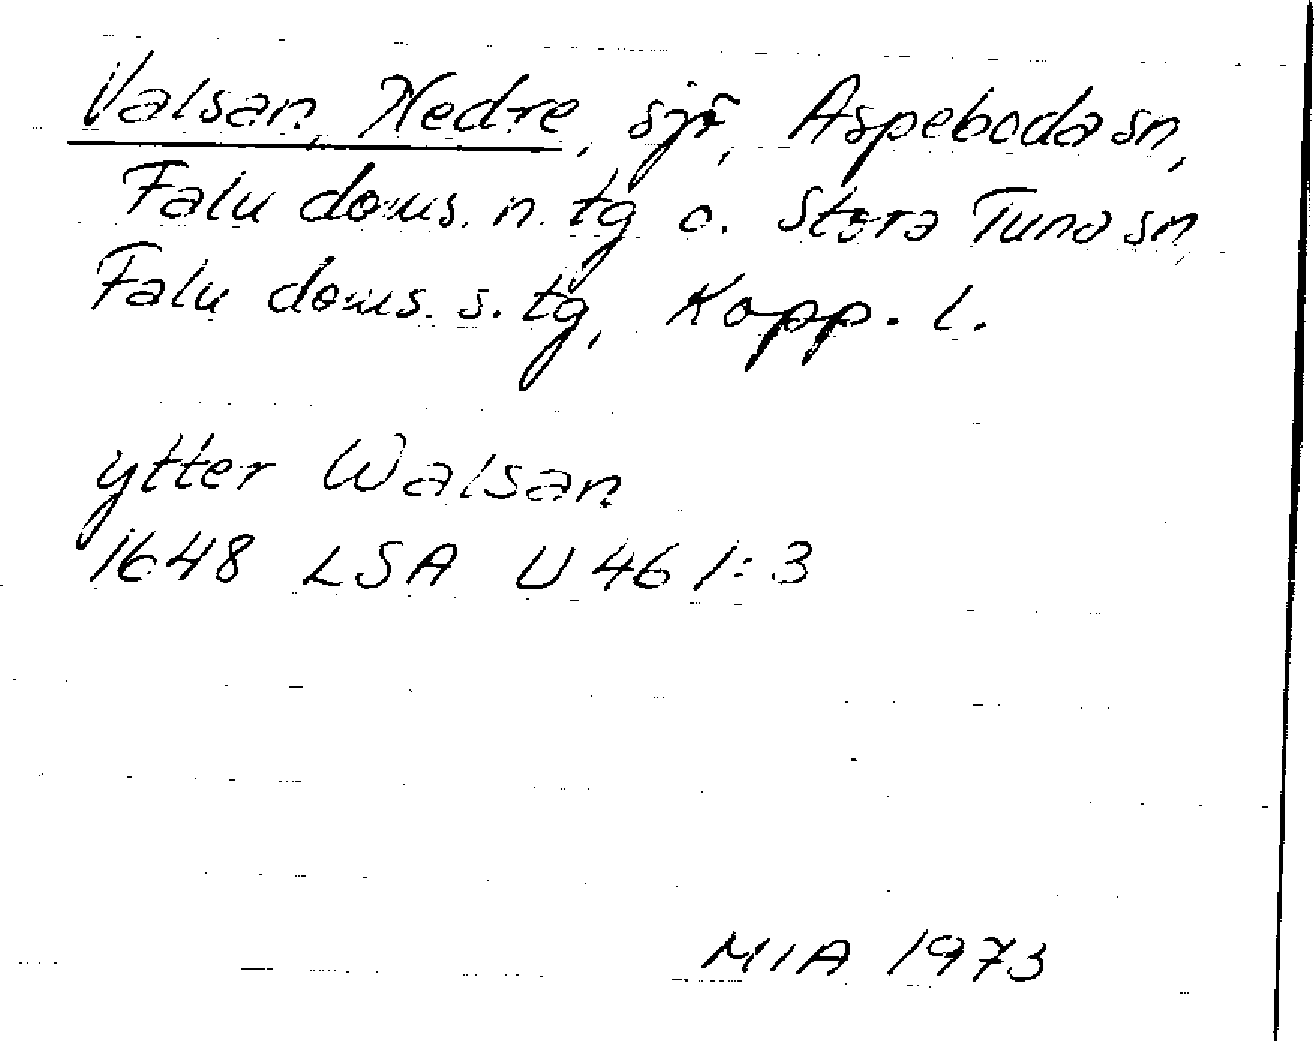 Valsan, Nedre, sjö, Aspeboda sn,
Falu doms. n. tg o. Stora Tuna sn,
Falu doms. s. tg, Kopp. l.
ytter Walsan
1648 LSA U 46 1:3
MIA 1973